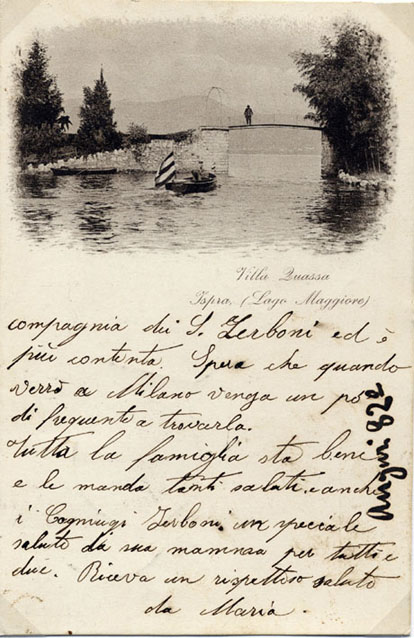 Villa Quassa
Ispra, (Lago Maggiore)
compagnia dei S. Zerboni ed è
più contenta. Spera che quando
verrò a Milano venga un po'
di frequente a trovarla.
Tutta la famiglia sta bene
e le manda tanti saluti, e anche
i Cogniugi Zerboni un speciale
saluto da sua mamma per tutti e
due. Riceva un rispettoso saluto
da Maria.
Auguri 82a